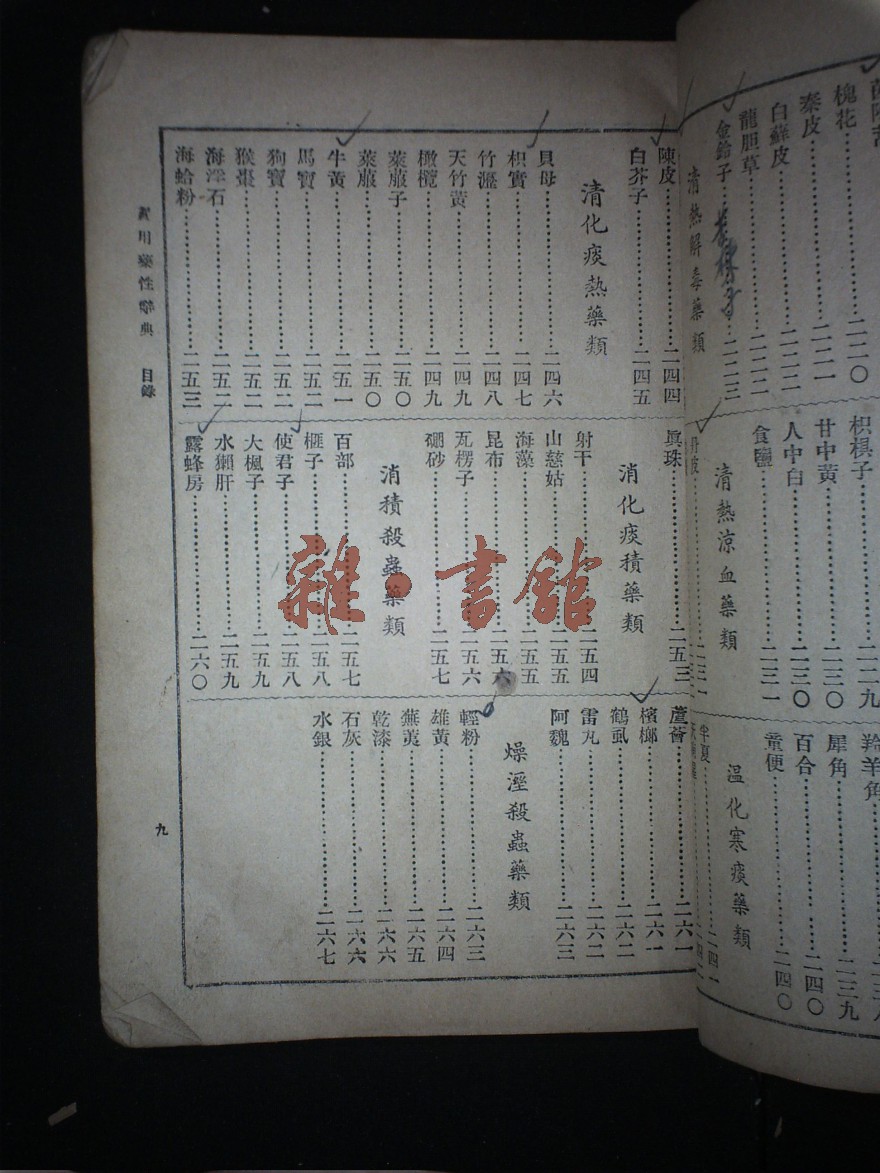 槐花……二二〇
秦皮……二二一
白蘚皮……二二二
龍胆草……二二二
金鈴子……二二三
清熱解毒藥類
枳椇子……二二九
甘中黃……二三〇
人中白……二三〇
食鹽……二三一
清熱涼血藥類
丹皮……二三一
羚羊角
犀角……二三九
百合……二四〇
童便……二四〇
溫化寒痰藥類
半夏……二四一
陳皮……二四四
白芥子……二四五
清化痰熱藥類
貝母……二四六
枳實……二四七
竹瀝……二四八
天竹黃……二四九
橄欖……二四九
萊菔子……二五〇
萊菔……二五〇
牛黃……二五一
馬寶……二五二
狗寶……二五二
猴棗……二五二
海浮石……二五二
海蛤粉……二五三
眞珠……二五三
消化痰積藥類
射干……二五四
山慈姑……二五五
海藻……二五五
昆布……二五六
瓦楞子……二五六
硼砂……二五七
消積殺蟲藥類
百部……二五七
榧子……二五八
使君子……二五八
大楓子……二五九
水獺肝……二五九
露蜂房……二六〇
蘆薈……二六一
檳榔……二六一
鶴虱……二六二
雷丸……二六二
阿魏……二六三
燥溼殺蟲藥類
輕粉……二六三
雄黃……二六四
蕪荑……二六五
乾漆……二六六
石灰……二六六
水銀……二六七
實用藥性辭典 目錄
九
雜·書館